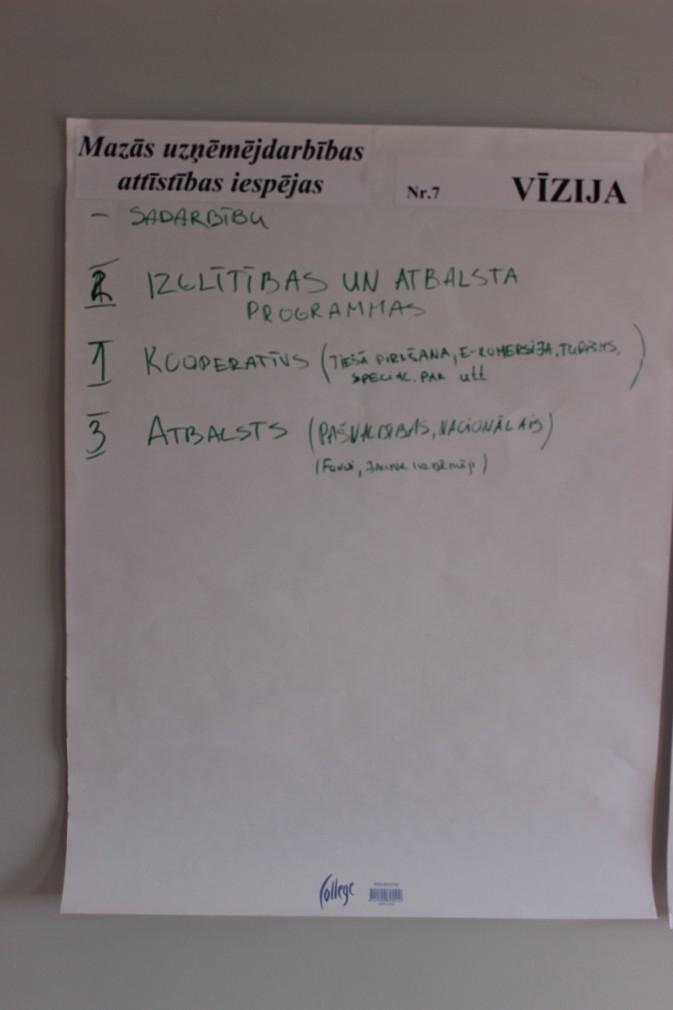 Mazās uzņēmējdarbības
attīstības iespējas
Nr.7 VĪZIJA
– SADARBĪBU
2 IZGLĪTĪBAS UN ATBALSTA
PROGRAMMAS
1 KOOPERATĪVS (TIEŠĀ PIRKŠANA, E-KOMERSIJA, TŪRISMS,
SPECIAL. PAK utt )
3 ATBALSTS (PAŠVALDĪBAS, NACIONĀLAIS)
(Fondi, Jaunie uzņēmēji)
College